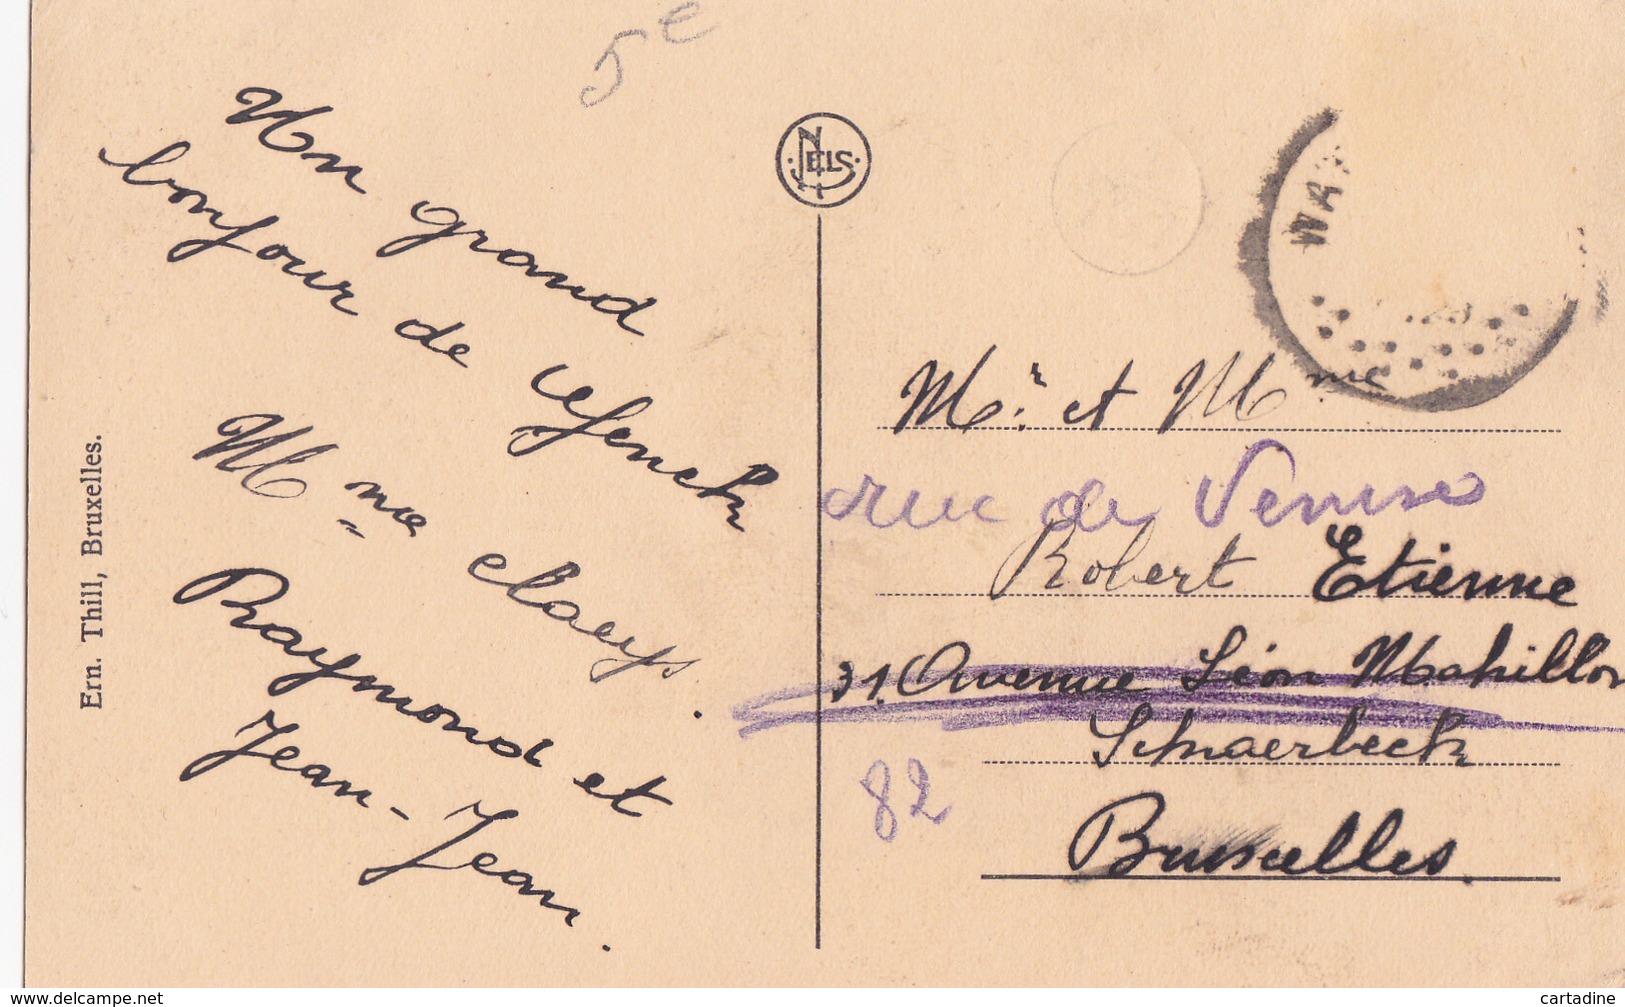 5e
Un grand
bonjour de
Mme Claeys.
Raymond et
Jean-Jean.
Ern. Thill, Bruxelles.
NELS
Mr. et Mme
rue de Venise
Robert Etienne
31. Avenue Léon Mahillon
Schaerbeek
82
Bruxelles.
www.delcampe.net
cartadine